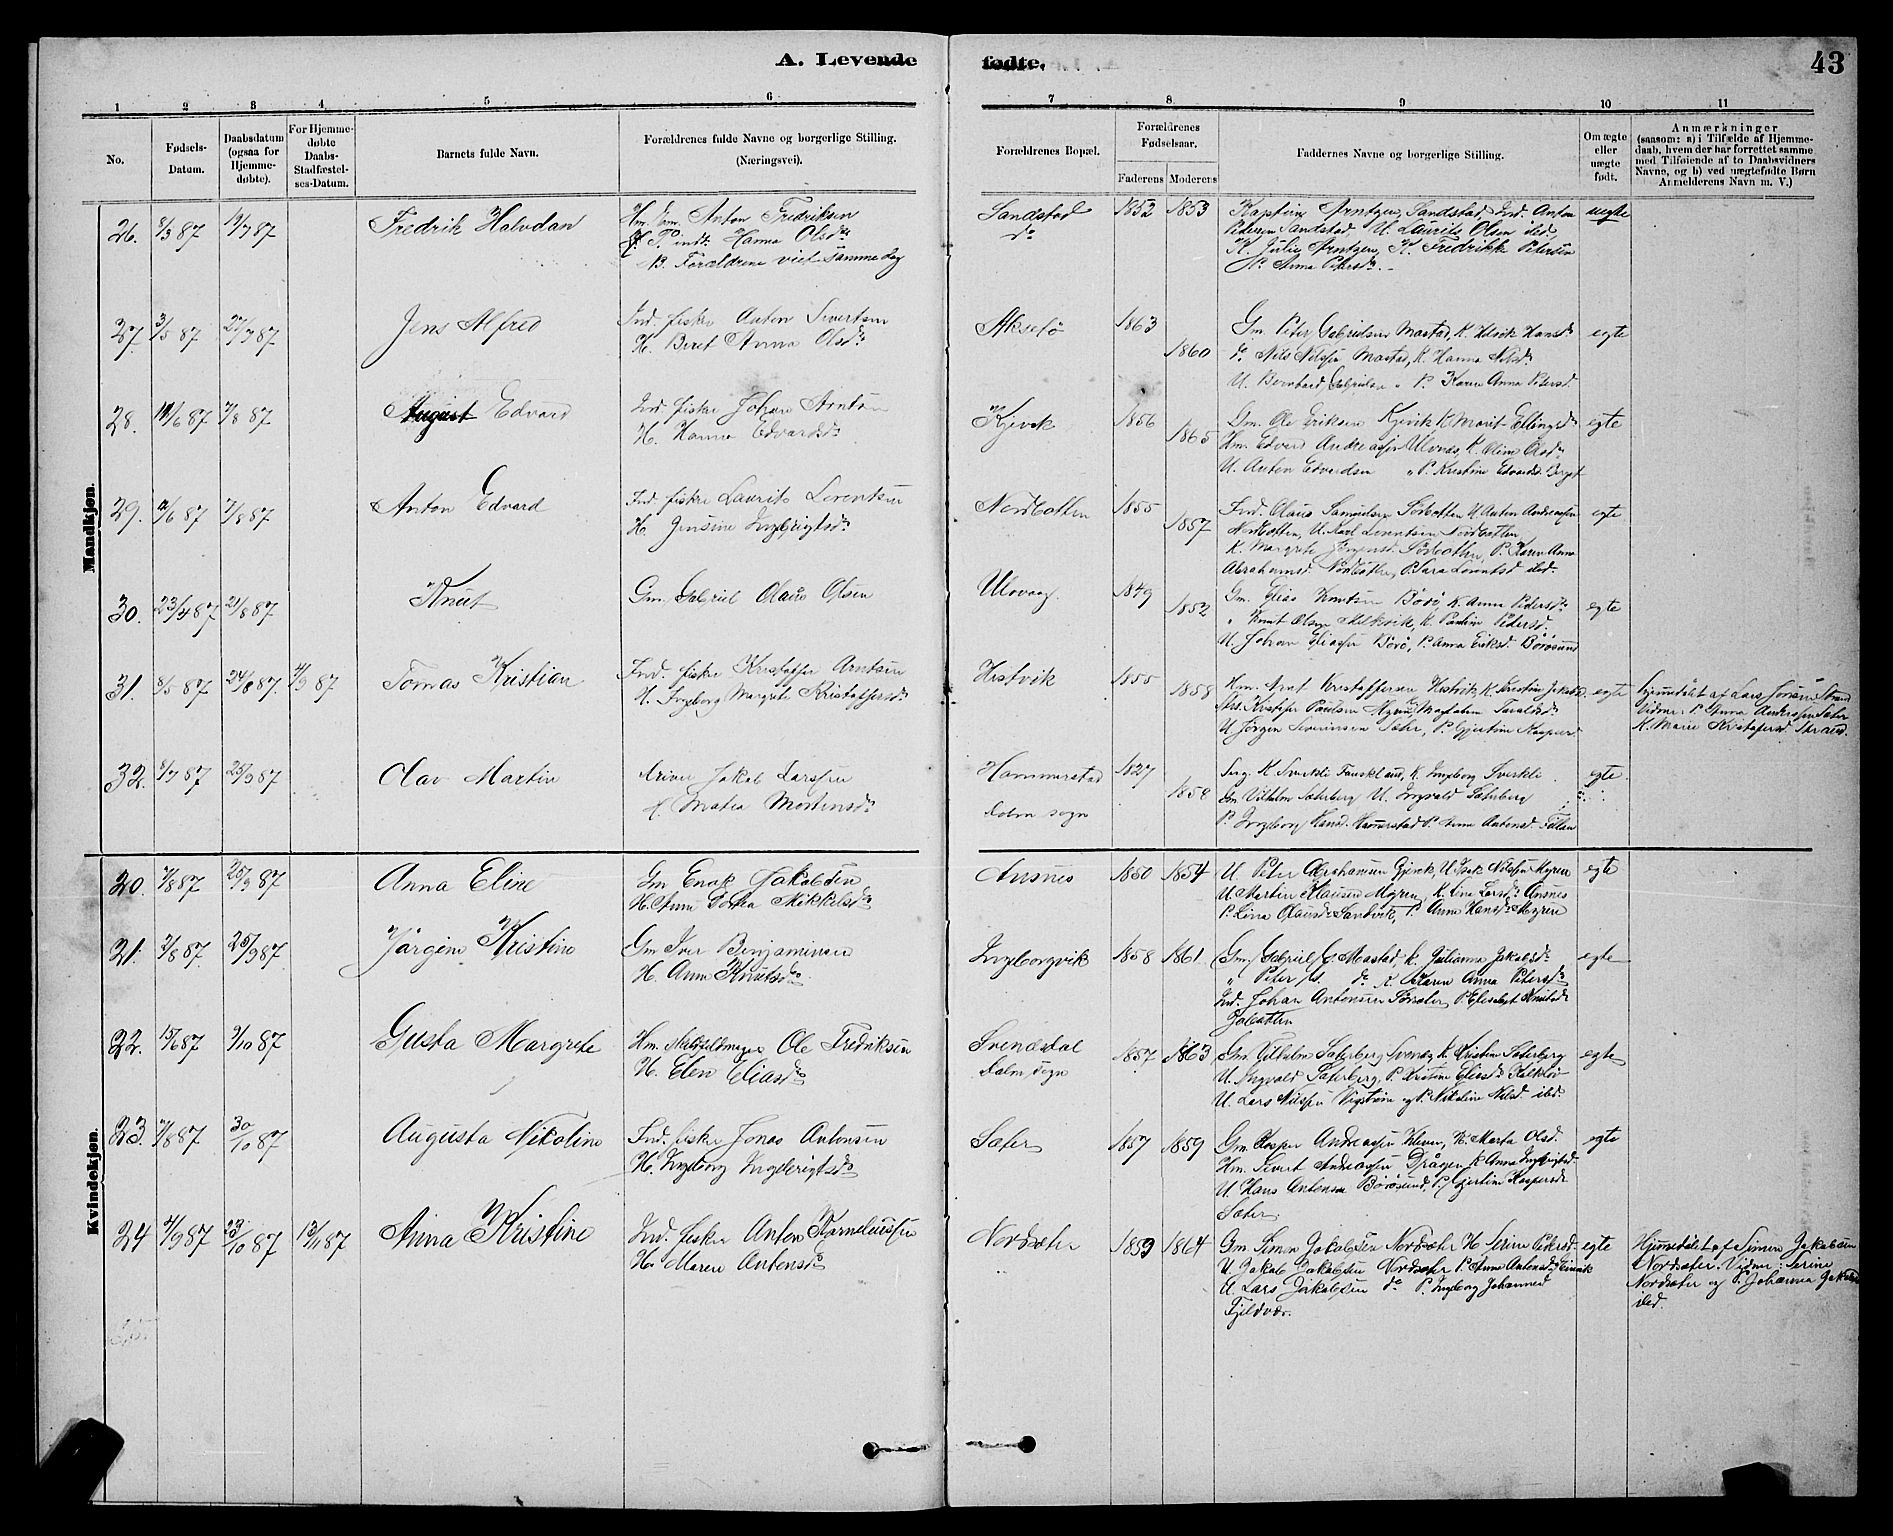 A. Levende fødte. 43
1 2 3 4 5 6 7 8. 9 10 11
No.
Fødsels-
Datum.
Daabsdatum
(ogsaa for
Hjemme-
døbte).
For Hjemme-
døbte
Daabs-
Stadfæstel-
ses-Datum.
Barnets fulde Navn.
Forældrenes fulde Navne og borgerlige Stilling.
(Næringsvei).
Forældrenes Bopæl.
Forældrenes
Fødselsaar.
Faderens Moderens
Faddernes Navne og borgerlige Stilling.
Om ægte
eller
uægte
født.
Anmærkninger
(saasom: a) i Tilfælde af Hjemme-
daab, hvem der har forrettet samme
med Tilføiende af to Daabsvidners
Navne, og b) ved uægtefødte Børn
Anmelderens Navn m. V.)
Mandkjøn.
26. 8/3 87 Fredrik Halvdan
Anton Fredriksen
Hanna Olsdr
B. Forældrene viet samme dag
Sandstad
do
1852 1853
Arntzen, Sandstad, Ind. Anton
Petersen Sandstad, U. Laurits Olsen ibd.
K. Julie Arntzen, K. Fredrikke Petersen
P. Anna Petersdr
uegte
27. 3/5 87 27/7 87 Jens Alfred
Ind. fisker Anton Sivertsen
H. Beret Anna Olsdr
Aksetø
1863
1860
Gm. Peter Gabrielsen Mastad, K. Hansdr
do Nils Nilssen Mastad, K. Hanna Nilsdr
U. Bernhard Gabrielsen " P. Karen Anna Petersd.
egte
28. 7/8 87 August Edvard
Ind. fisker Johan Arntsen
H. Hanna Edvardsdr
Kjevik
1856
1865
Gm. Ole Eriksen Kjevik K. Marit Ellingsdr
Hm. Edvard Andreassen Ulvnes, K. Oline Olsdr
U. Anton Edvardsen " P. Kristine Edvardsd. Berget
egte
29. 7/8 87 Anton Edvard
Ind. fisker Laurits Lorentsen
H. Jensine Ingbrigtsdr
Nordbotten
1855
1857
Ind. Olaus Samuelsen Sørbotten U. Anton Andreassen
Nordbotten, U. Karl Lorentsen Nordbotten
K. Margrete Jørgensd. Sørbotten, P. Karen Anna
Abrahamsd. Nordbotten, P. Sara Lorentsd. ibd.
egte
30. 23/4 87 21/8 87 Knut
Gm. Gabriel Olaus Olsen
Ulvvaag
1849
1852
Gm. Elias Knutsen Børø, K. Anna Pedersdr
" Knut Olsen K. Pauline Pedersd.
U. Johan Eliassen Børø, P. Anna Eriksd. Børøsund
egte
31. 8/5 87 24/8 87. 4/9 87 Tomas Kristian
Ind. fisker Kristoffer Arntsen
H. Ingeborg Margrete Kristoffersdr
Hestvik
1855
1858
Hm. Arnt Kristoffersen Hestvik, K. Kristine Jakobsd.
Kristofer Paulsen Magdalena
U. Jørgen Severinsen Sæter, P. Gjertine Kaspersd.
egte
Hjemdøbt af Lars Strand
Vidner: P. Anna Andersen Sæter
K. Marie Kristofersd. Strand.
32. 8/7 87 25/9 87 Olav Martin
Jakob Larssen
H. Matea Mortensdr
Hammerstad
Dolm sogn
1827
1858
K. Sverkli Fauskland, K. Ingeborg Sverkli
Gm Vilhelm Sæterberg U. Ingvald Sæterberg
P. Ingeborg Hansd. Hammerstad P. Anna Antonsd. Fillan
egte
Kvindekjøn.
20. 7/8 87 25/9 87 Anna Eline
Gm Enok Jakobsen
H. Anne Dortea Mikkelsdr
Ansnes
1850 1854
U. Peter Abrahamsen Gjevik, U. Isak Nilssen Myren
U. Martin Klausen Myren, K. Lina Larsdr Ansnes
P. Lina Olausdr Sandvik, P. Anne Hansdr Myren
egte
21. 2/8 87 25/9 87 Jørgine Kristine
Gm Iver Benjaminsen
H. Anne Knutsdr
Ingeborgvik
1858 1861
Gm. Gabriel G. Mastad, K. Julianna Jakobsdr
" Peter do K. Karen Anna Petersdr
Ind. Johan Antonsen Sørsæter, P. Elisabet Knutsdr
Jøbotten
egte
22. 15/6 87 9/10 87 Gusta Margrete
Hm. Ole Fredriksen
H. Elen Eliasdr
Svendsdal
Dolm sogn
1857 1863
Gm. Vilhelm Sæterberg K. Kristine Sæterberg
U. Ingvald Sæterberg, P. Kristine Eliasdr
U. Lars Nilssen og P. Nikoline Nilsd. ibd.
egte
23. 30/10 87 Augusta Nikoline
Ind. fisker Jonas Antonsen
H. Ingeborg Ingebrigtsdr
Sæter
1857 1859
Gm. Kasper Andreassen Kleven, K. Marta Olsd.
Hm. Sivert Andreassen K. Anna Ingbrigtsd.
U. Hans Antonsen Børøsund, P. Gjertine Kaspersdr
Sæter.
egte
24 4/9 87 23/10 87 13/11 87 Anna Kristine
Ind. fisker Anton Korneliussen
H. Maren Antonsdr
Nordsæter
1859 1864
Gm. Simon Jakobsen Nordsæter K. Serine Petersd.
U. Jakob Jakobsen Nordsæter P. Anne Antonsdr
U. Lars Jakobsen do P. Ingeborg Johannesd
Fjeldvær.
egte
Hjemdøbt af Simon Jakobsen
Nordsæter. Vidner: Serine
Nordsæter og P. Johanna Jakobsd
ibd.
25